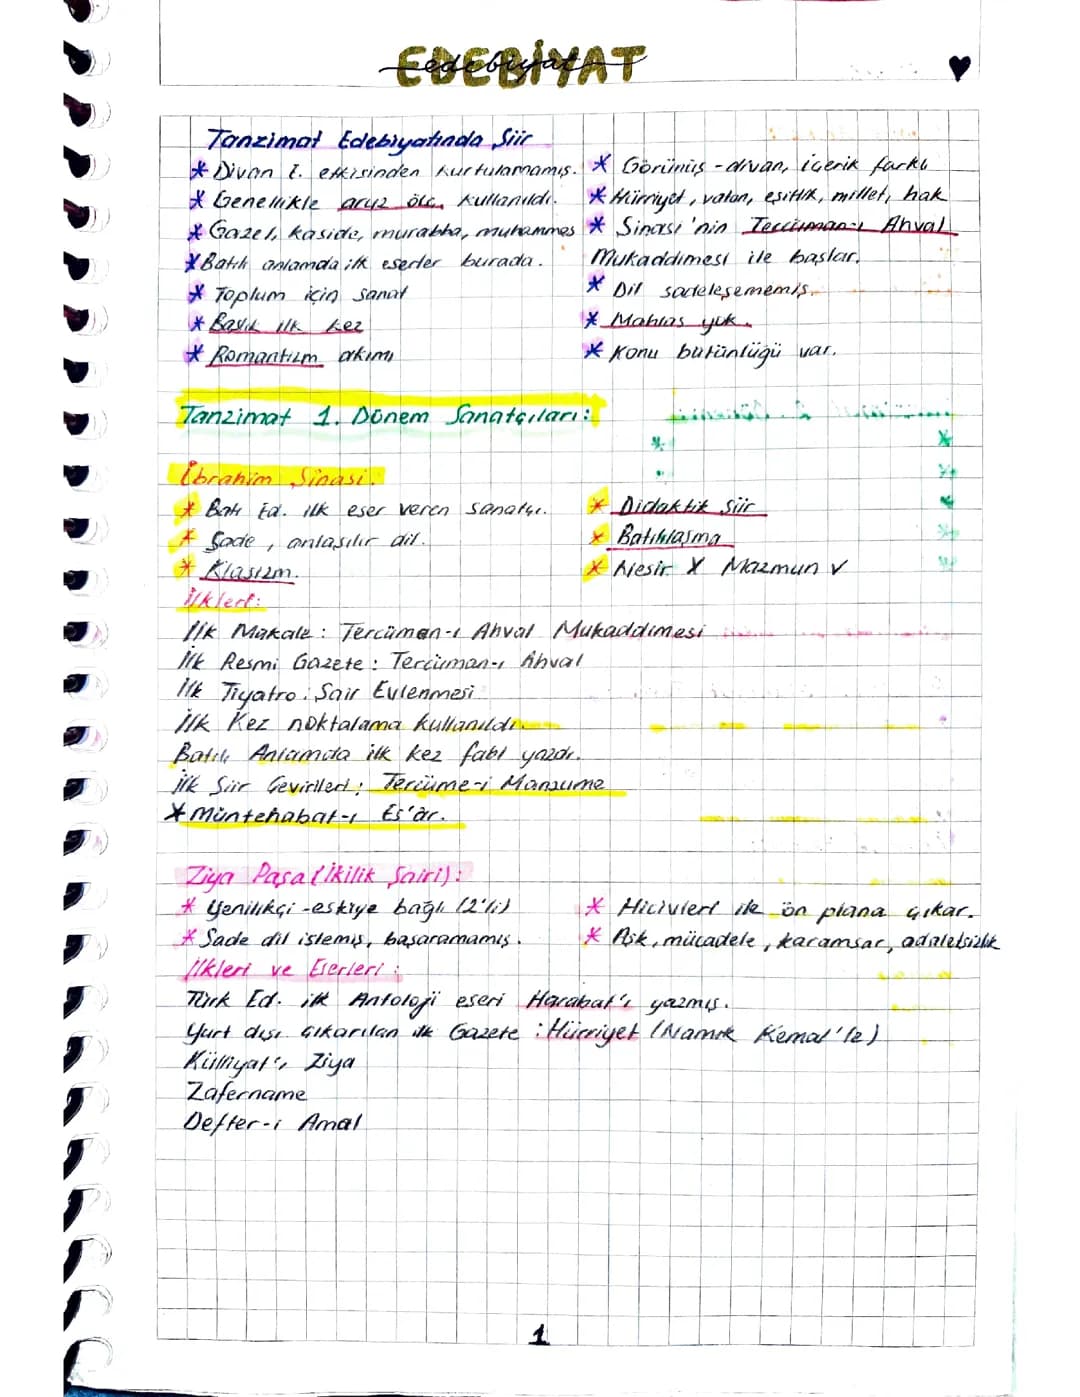 EDEBİYAT
edebiyat
Tanzimat Edebiyatında Şiir
* Divan E. etkisinden kurtulamamış.
* Genellikle aruz ölç. kullanıldı.
* Gazel, kaside, murabba, muhammes
* Batılı anlamda ilk eserler burada.
* Toplum için sanat
* Başlık ilk kez
* Romantizm akımı
* Görünüş - divan, içerik farklı
* Hürriyet, vatan, eşitlik, millet, hak
* Şinasi'nin Tercüman-ı Ahval
Mukaddimesi ile başlar.
* Dil sadeleşememiş.
* Mahlas yok.
* Konu bütünlüğü var.
Tanzimat 1. Dönem Sanatçıları:
İbrahim Şinasi:
* Batı Ed. ilk eser veren sanatçı.
* Sade, anlaşılır dil.
* Klasizm.
* Didaktik şiir
* Batılılaşma
* Nesir X Mazmun V
İlkleri:
İlk Makale: Tercüman-ı Ahval Mukaddimesi
İlk Resmi Gazete: Tercüman-ı Ahval
İlk Tiyatro: Şair Evlenmesi
İlk Kez noktalama kullanıldı.
Batılı Anlamda ilk kez fabl yazdı.
İlk Şiir Çevirileri: Tercüme-i Manzume
* Müntehabat-ı Eş'ar.
Ziya Paşa (İkilik Şairi):
* Yenilikçi - eskiye bağlı (2'li)
* Sade dil istemiş, başaramamış.
* Hicivleri ile ön plana çıkar.
* Aşk, mücadele, karamsar, adaletsizlik
İlkleri ve Eserleri:
Türk Ed. ilk Antoloji eseri Harabat'ı yazmış.
Yurt dışı çıkarılan ilk Gazete: Hürriyet (Namık Kemal'le)
Külliyat'ı Ziya
Zafername
Defter-i Amal
1